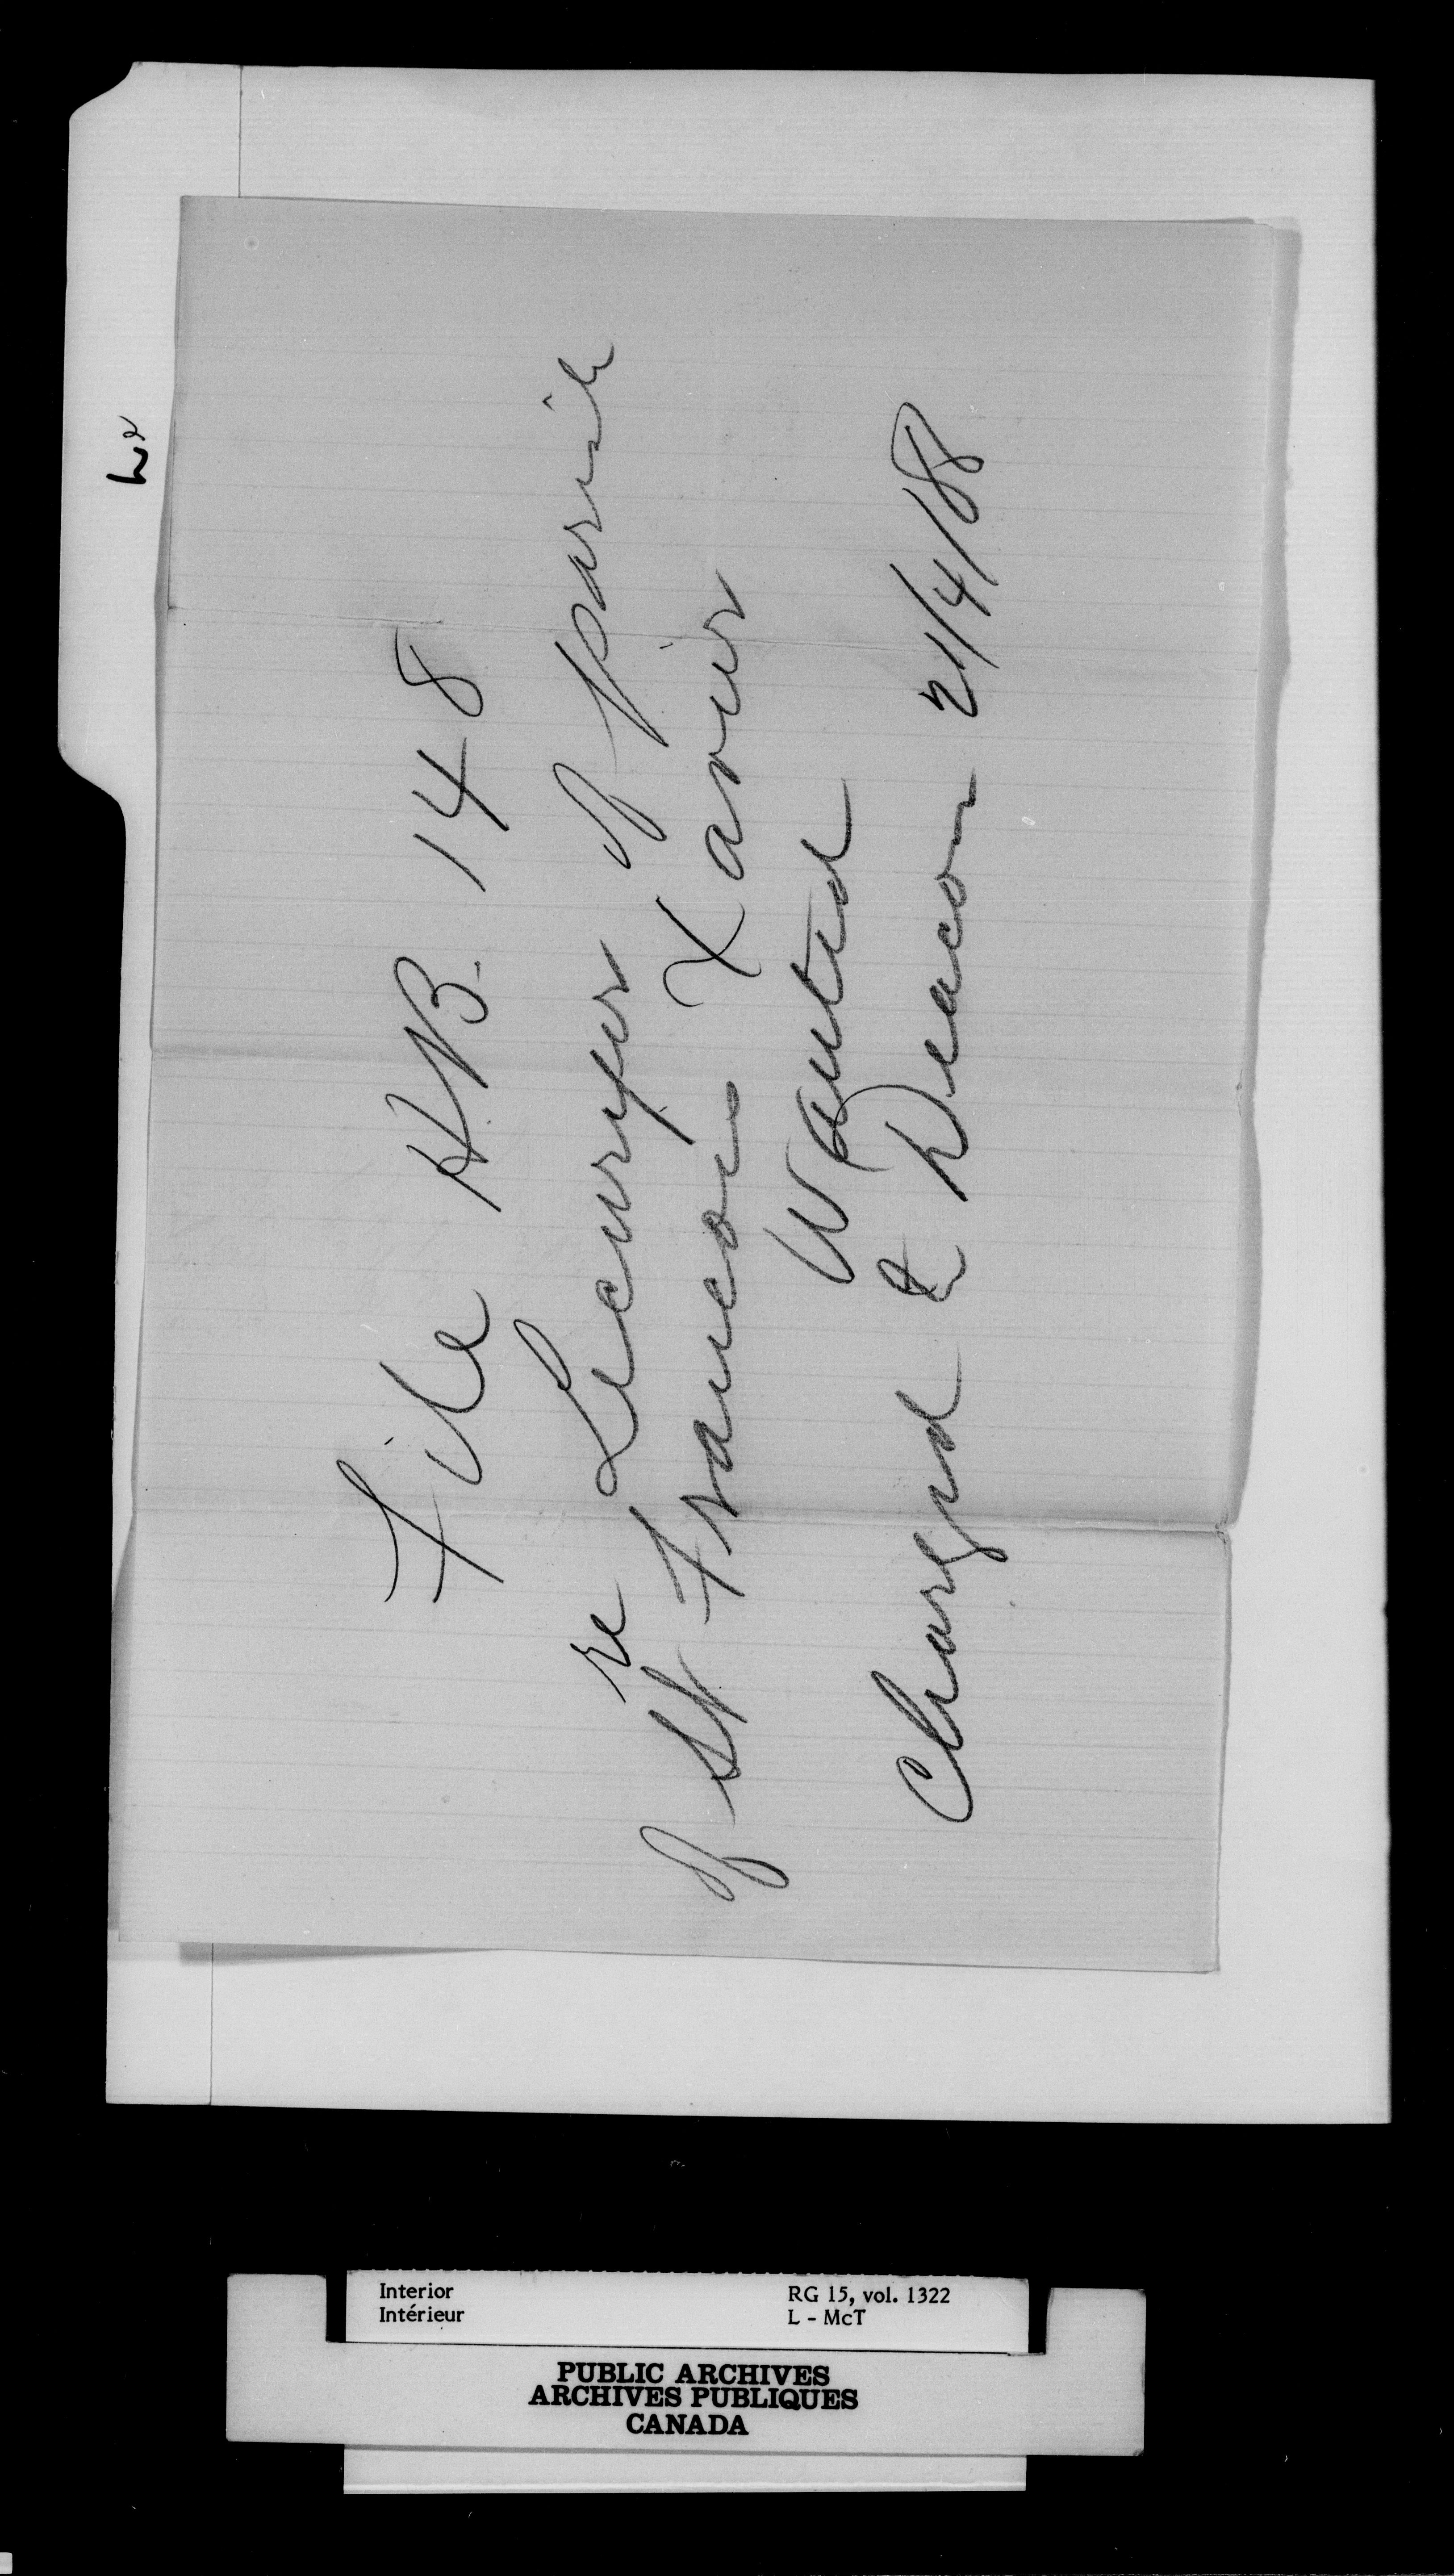 File HB. 148
re Lecuyer of parish
of St Francois Xavier
Wanted
Charged to Deacon 21/4/88
Interior
Intérieur
RG 15, vol. 1322
L - McT
PUBLIC ARCHIVES
ARCHIVES PUBLIQUES
CANADA